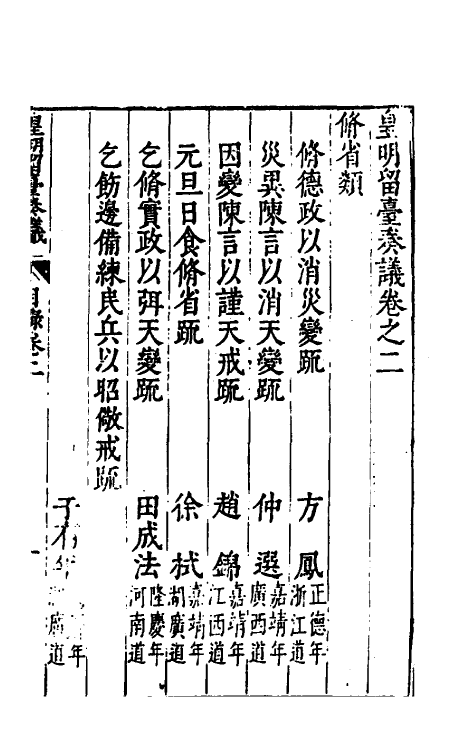 皇明留臺奏議卷之二
脩省類
脩德政以消災變疏 方鳳 正德年浙江道
災異陳言以消天變疏 仲選 嘉靖年廣西道
因變陳言以謹天戒疏 趙錦 嘉靖年江西道
元旦日食脩省疏 徐栻 嘉靖年湖廣道
乞脩實政以弭天變疏 田成法 隆慶年河南道
乞飭邊備練民兵以昭儆戒疏
年廣道
皇明留臺奏議 目錄卷二 一